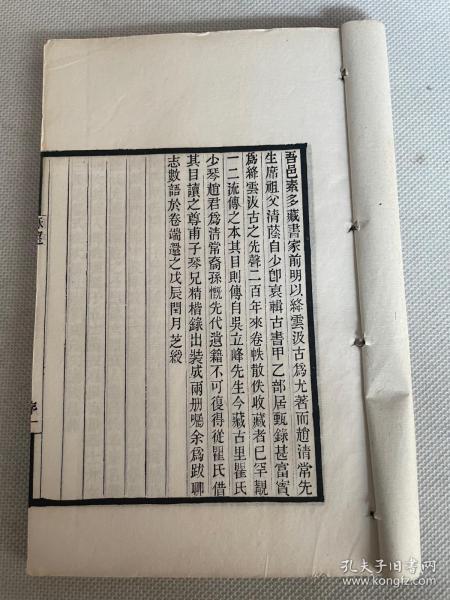 吾邑素多藏書家前明以絳雲汲古爲尤著而趙清常先
生席祖父清蔭自少卽裒輯古書甲乙部居甄錄甚富實
爲絳雲汲古之先聲二百年來卷帙散佚收藏者已罕覯
一二流傳之本其目則傳自吳立峰先生今藏古里瞿氏
少琴趙君爲清常裔孫慨先代遺籍不可復得從瞿氏借
其目讀之尊甫子琴兄精楷錄出裝成兩册囑余爲跋聊
志數語於卷端還之戊辰閏月芝綬
序
一
孔夫子旧书网
www.kongfz.com